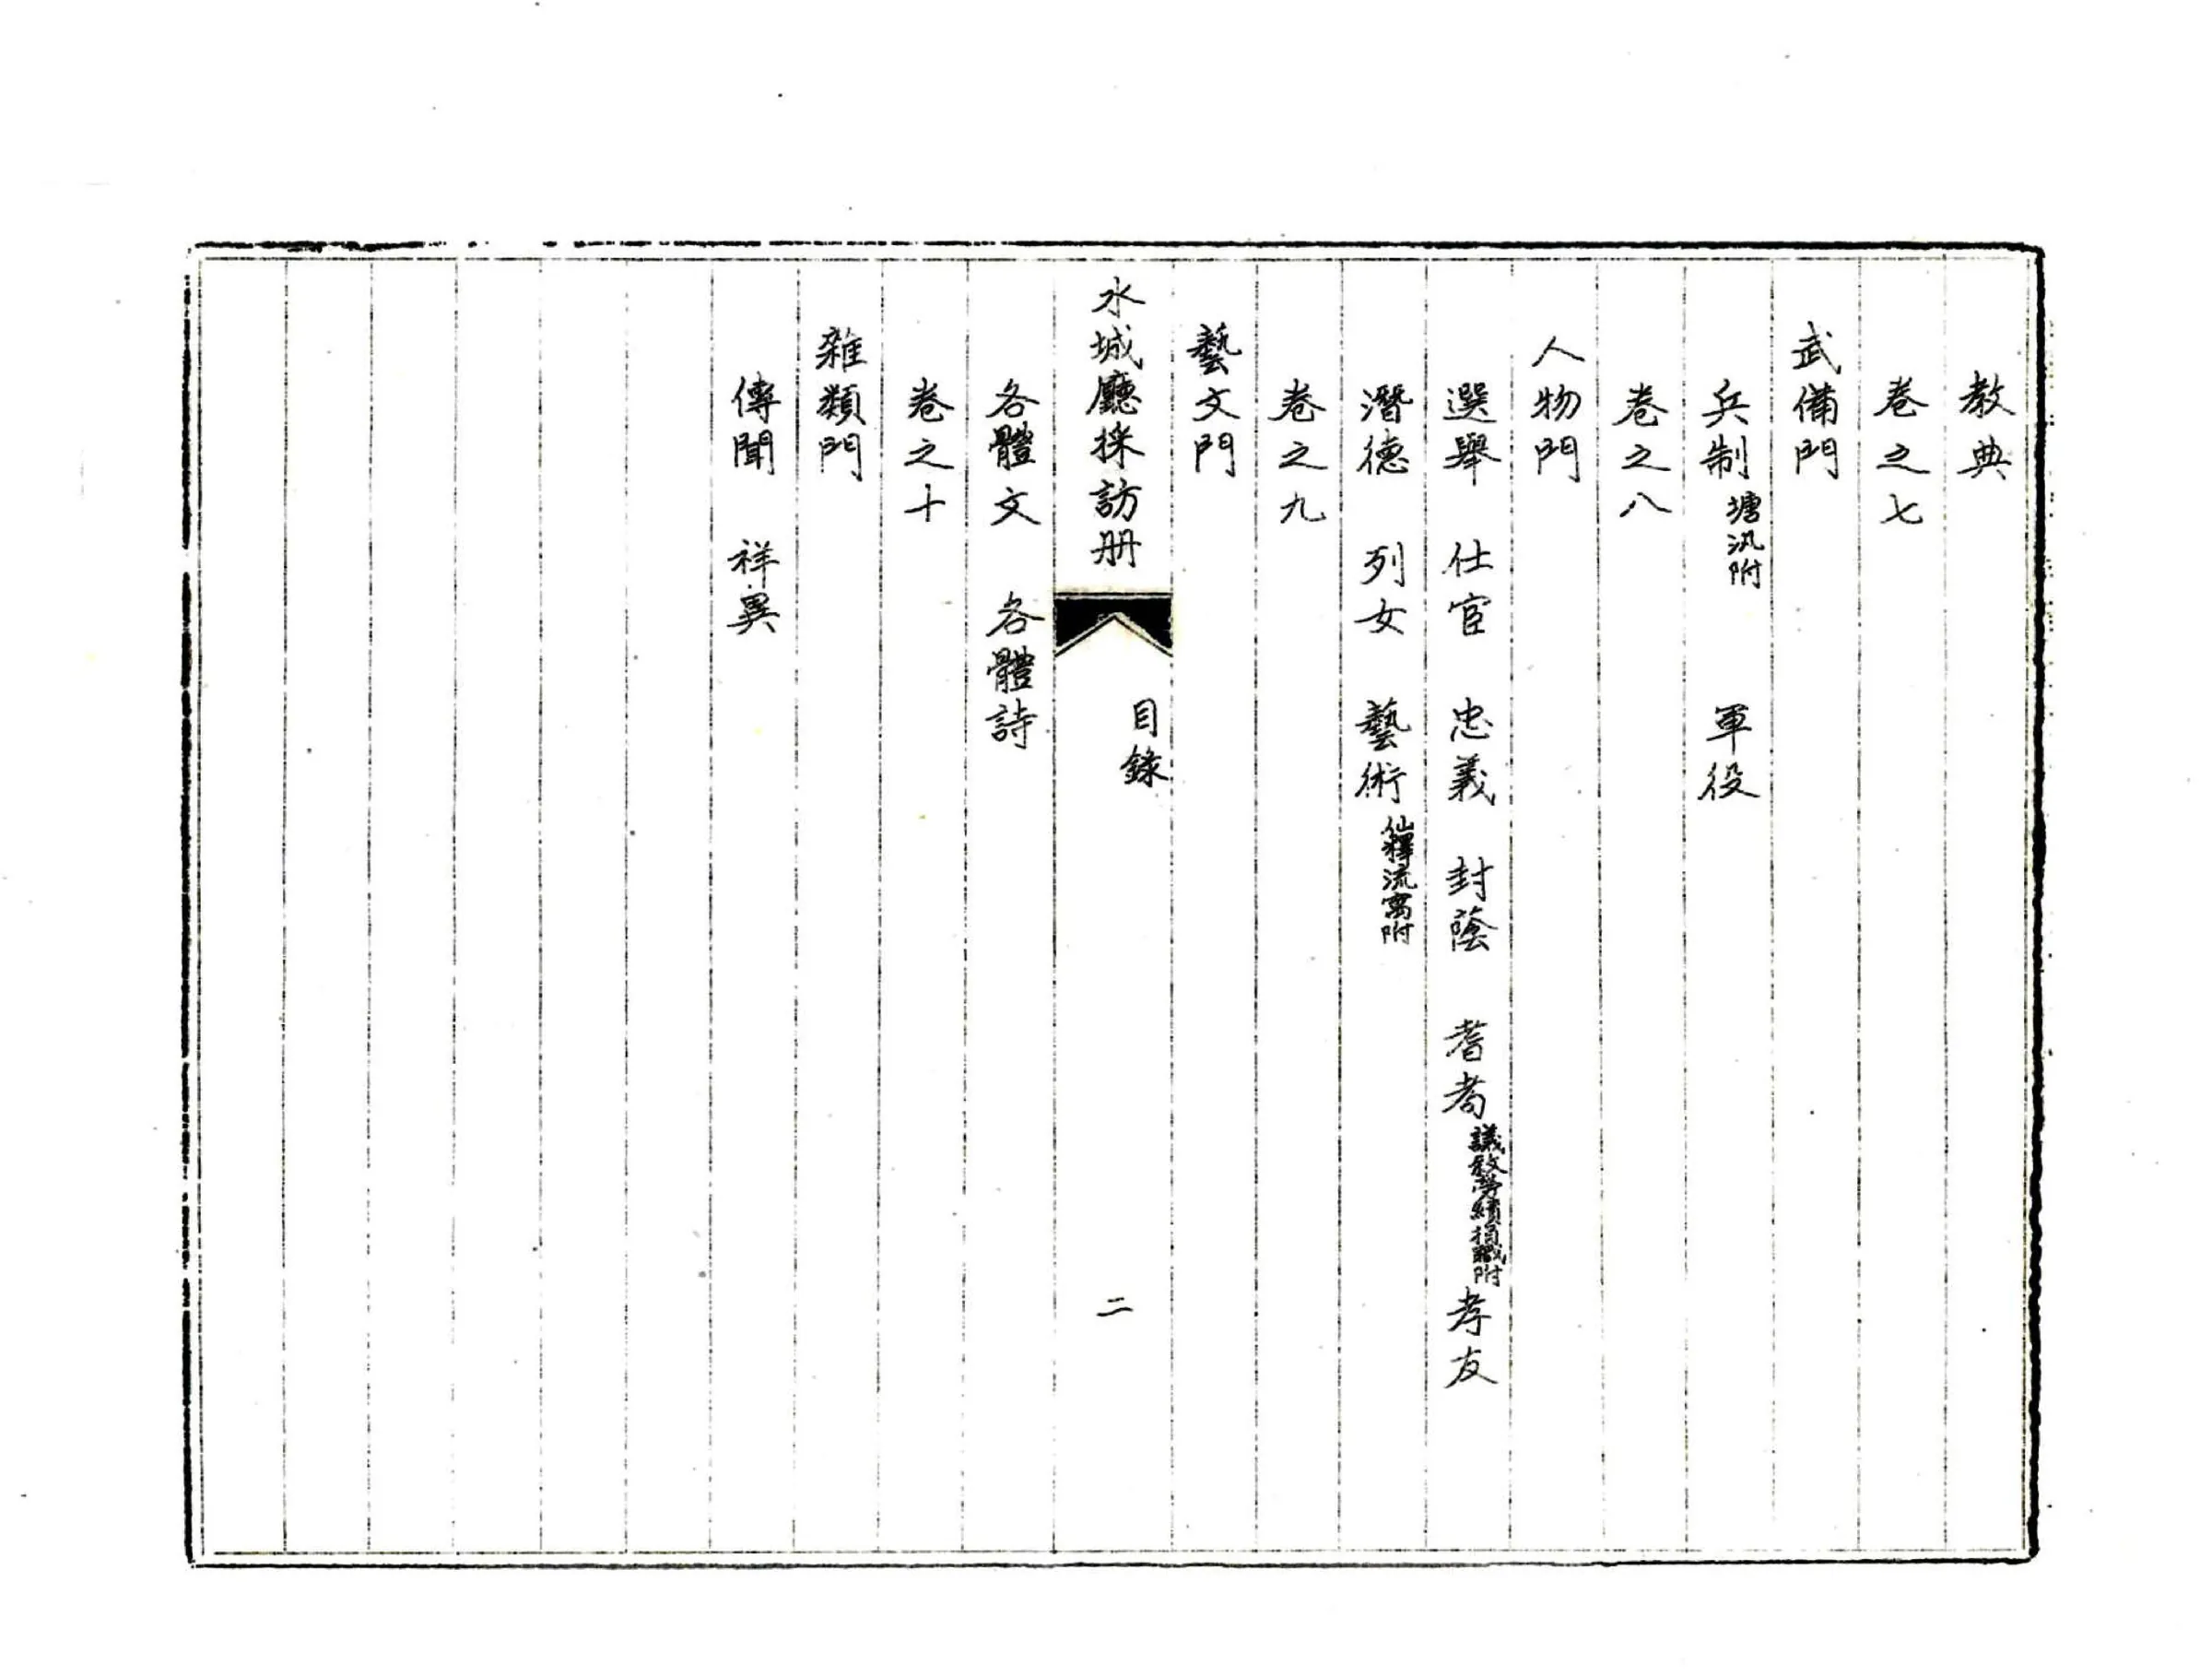 教典
卷之七
武備門
兵制 塘汛附 軍役
卷之八
人物門
選舉 仕宦 忠義 封蔭 耆耇 議敘勞績捐職附 孝友
潛德 列女 藝術 仙釋流寓附
卷之九
藝文門
水城廳採訪册 目錄 二
各體文 各體詩
卷之十
雜類門
傳聞 祥異